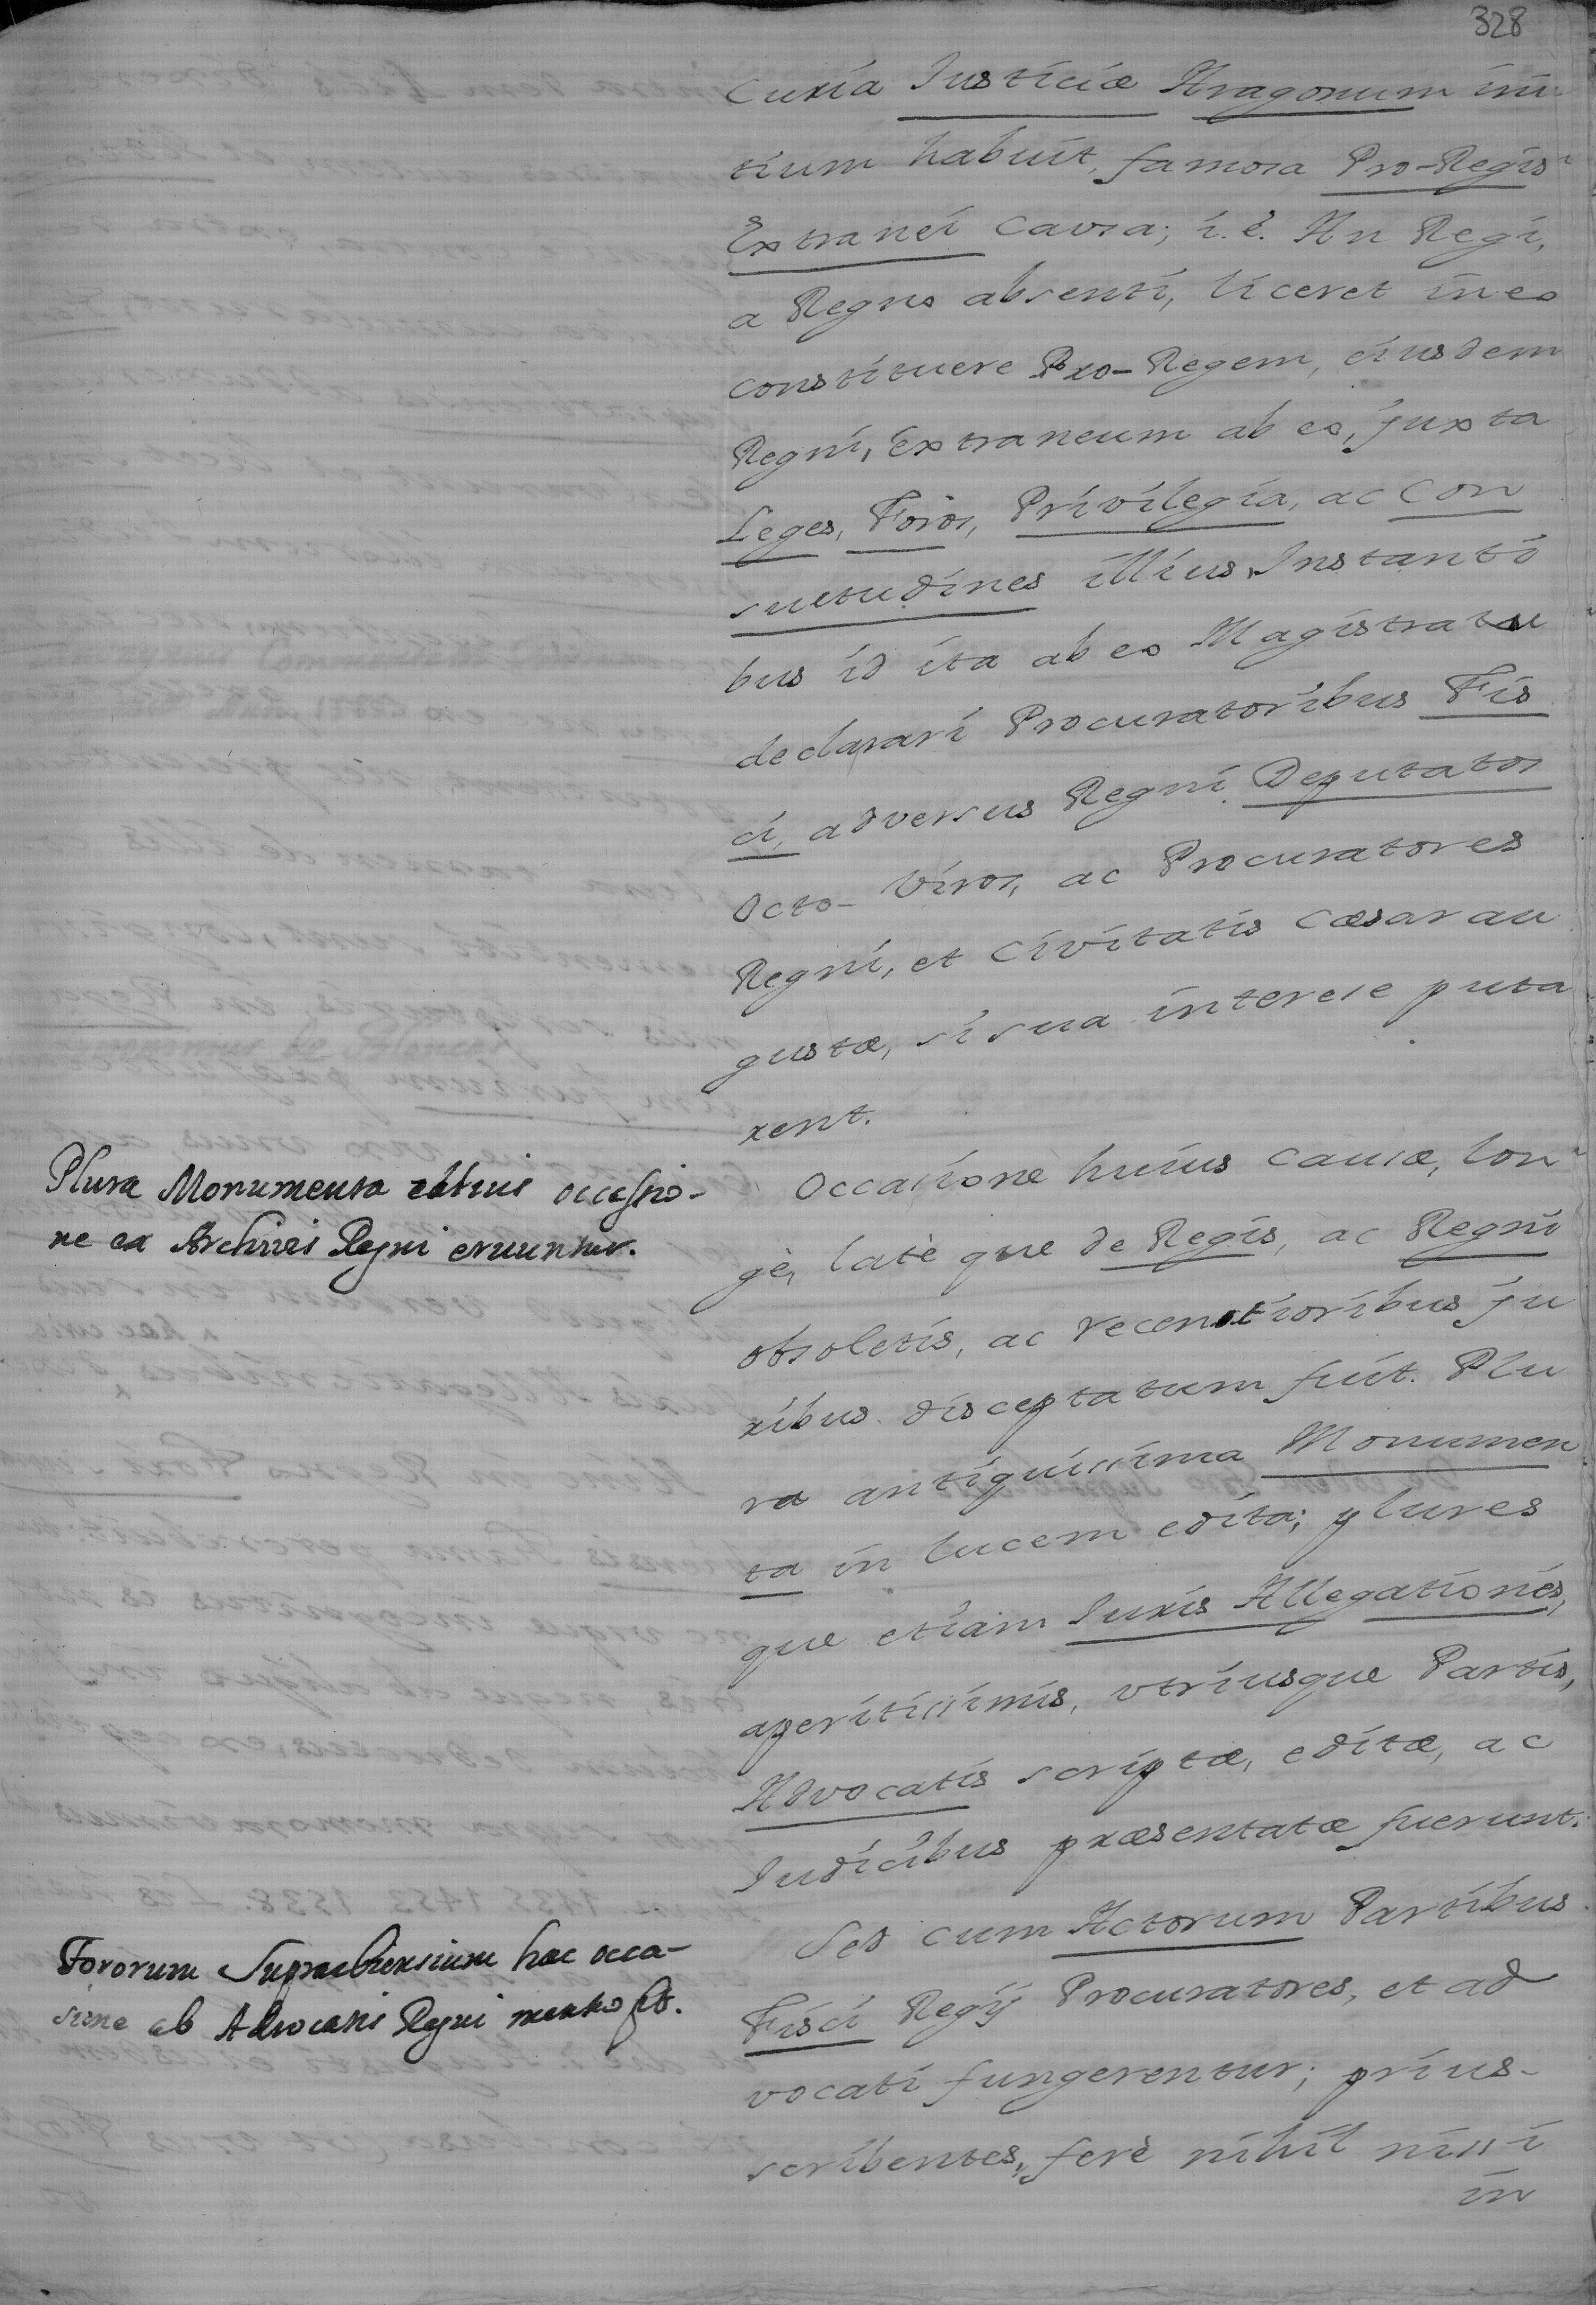 328
Curia Justiciæ Aragonum ini
tium habuit, famosa Pro-Regis
Extranei causa; i.è. An Regi,
a Regno absenti, liceret in eo
constituere Pro-Regem, eiusdem
Regni, Extraneum ab eo, juxta
Leges, Foros, Privilegia, ac Con
suetudines illius, Instanti
bus id ita ab eo Magistratu
declarari Procuratoribus Fis
ci, adversus Regni Deputatos
Octo-Viros, ac Procuratores
Regni, et Civitatis Cæsarau
gustæ, si sua interese puta
rent.
Plura Monumenta occasio-
ne ex Archivis Regni eruuntur.
Occasione huius causæ, lon
gè, latè que de Regis, ac Regni
obsoletis, ac recentioribus ju
ribus disceptatum fuit. Plu
ra antiquissima Monumen
ta in lucem edita; plures
que etiam Juris Allegationes,
a peritissimis, utriusque Partis,
Advocatis scriptæ, editæ, ac
Judicibus præsentatæ fuerunt.
Fororum Suprarbiensium hac occa-
sione ab Advocatis Regni mentio fit.
Sed cum Actorum Partibus
Fisci Regij Procuratores, et ad
vocati fungerentur; prius-
scribentes, ferè nihil nissi
in